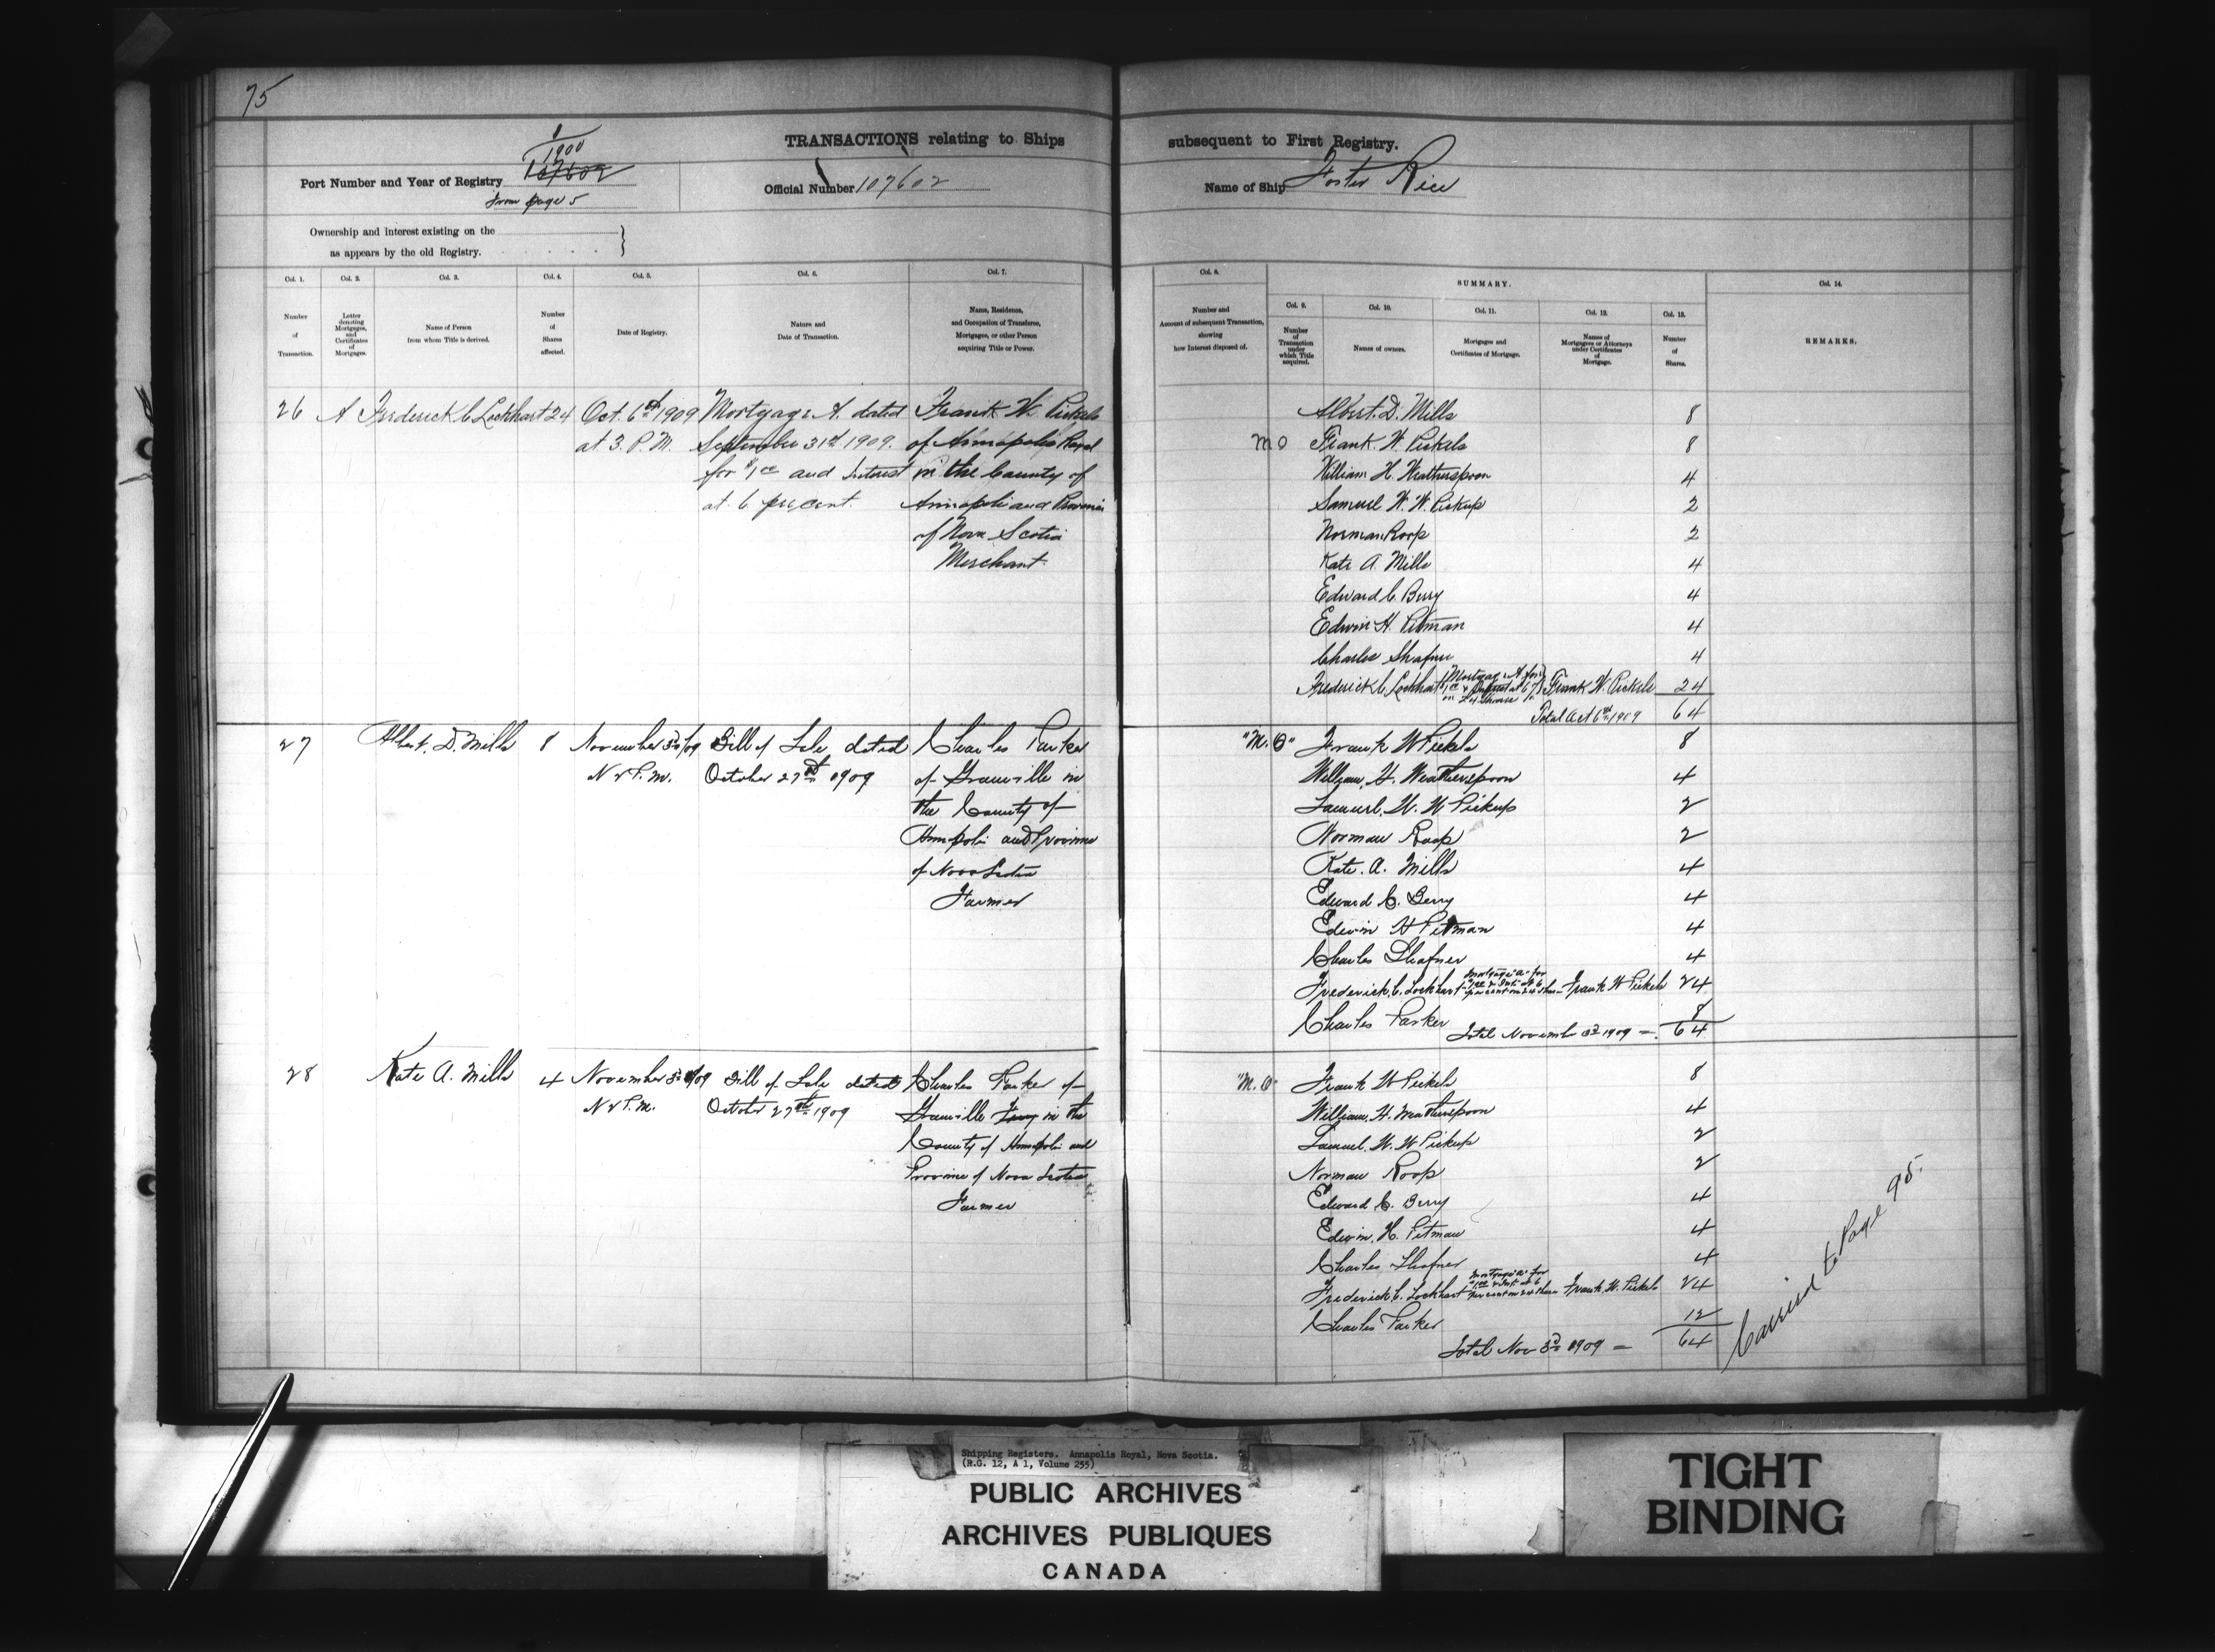 75
TRANSACTIONS relating to Ships subsequent to First Registry.
1/1900
107602
Port Number and Year of Registry
from page 5
Official Number 107602
Name of Ship Foster Rice
Ownership and interest existing on the
as appears by the old Registry.
Col. 1. Col. 2. Col. 3. Col. 4. Col. 5. Col. 6. Col. 7. Col. 8. SUMMARY. Col. 14.
Col. 9. Col. 10. Col. 11. Col. 12. Col. 13.
Number of Transaction.
Letter denoting Mortgages, and Certificates of Mortgages.
Name of Person from whom Title is derived.
Number of Shares affected.
Date of Registry.
Nature and Date of Transaction.
Name, Residence, and Occupation of Transferee, Mortgagee, or other Person acquiring Title or Power.
Number and Account of subsequent Transaction, showing how Interest disposed of.
Number of Transaction under which Title acquired.
Names of owners.
Mortgages and Certificates of Mortgage.
Names of Mortgagees or Attorneys under Certificates of Mortgage.
Number of Shares.
REMARKS.
26 A Frederick C Lockhart 24
Oct. 6th 1909
at 3. P.M.
Mortgage A. dated
September 31st 1909.
for $1.00 and Interest
at 6 per cent.
Frank W. Pickels
of Annapolis Royal
in the County of
Annapolis and Province
of Nova Scotia
Merchant.
Albert. D. Mills 8
M O Frank. W. Pickels 8
William H. Weatherspoon 4
Samuel W. W. Pickup 2
Norman Roop 2
Kate A. Mills 4
Edward C. Berry 4
Edwin H. Pitman 4
Charles Shafner 4
Frederick C. Lockhart Mortgage A. for $1.00 & Interest at 6% on 24 Shares Frank W. Pickels 24
Total Oct 6th 1909 64
27 Albert. D. Mills 8
November 3d 1909
N & P.M.
Bill of Sale dated
October 27th 1909
Charles Parker
of Granville in
the County of
Annapolis and Province
of Nova Scotia
Farmer
"M. O" Frank W Pickels 8
William. H. Weatherspoon 4
Samuel. W. W Pickup 2
Norman Roop 2
Kate. A. Mills 4
Edward C. Berry 4
Edwin H Pitman 4
Charles Shafner 4
Frederick. C. Lockhart Mortgage "A" for $1.00 & Int. at 6 per cent on 24 shares Frank W Pickels 24
Charles Parker 8
Total November 3d 1909 — 64
28 Kate A. Mills 4
November 3d 1909
N & P.M.
Bill of Sale dated
October 27th 1909
Charles Parker of
Granville Ferry in the
County of Annapolis and
Province of Nova Scotia
Farmer
"M. O" Frank W Pickels 8
William. H. Weatherspoon 4
Samuel. W. W Pickup 2
Norman Roop 2
Edward C. Berry 4
Edwin. H. Pitman 4
Charles Shafner 4
Frederick C. Lockhart Mortgage "A" for $1.00 & Int. at 6 per cent on 24 shares Frank W. Pickels 24
Charles Parker 12
Total Nov 3d 1909 — 64
Carried to Page 95.
Shipping Registers. Annapolis Royal, Nova Scotia.
(R.G. 12, A 1, Volume 255)
PUBLIC ARCHIVES
ARCHIVES PUBLIQUES
CANADA
TIGHT
BINDING